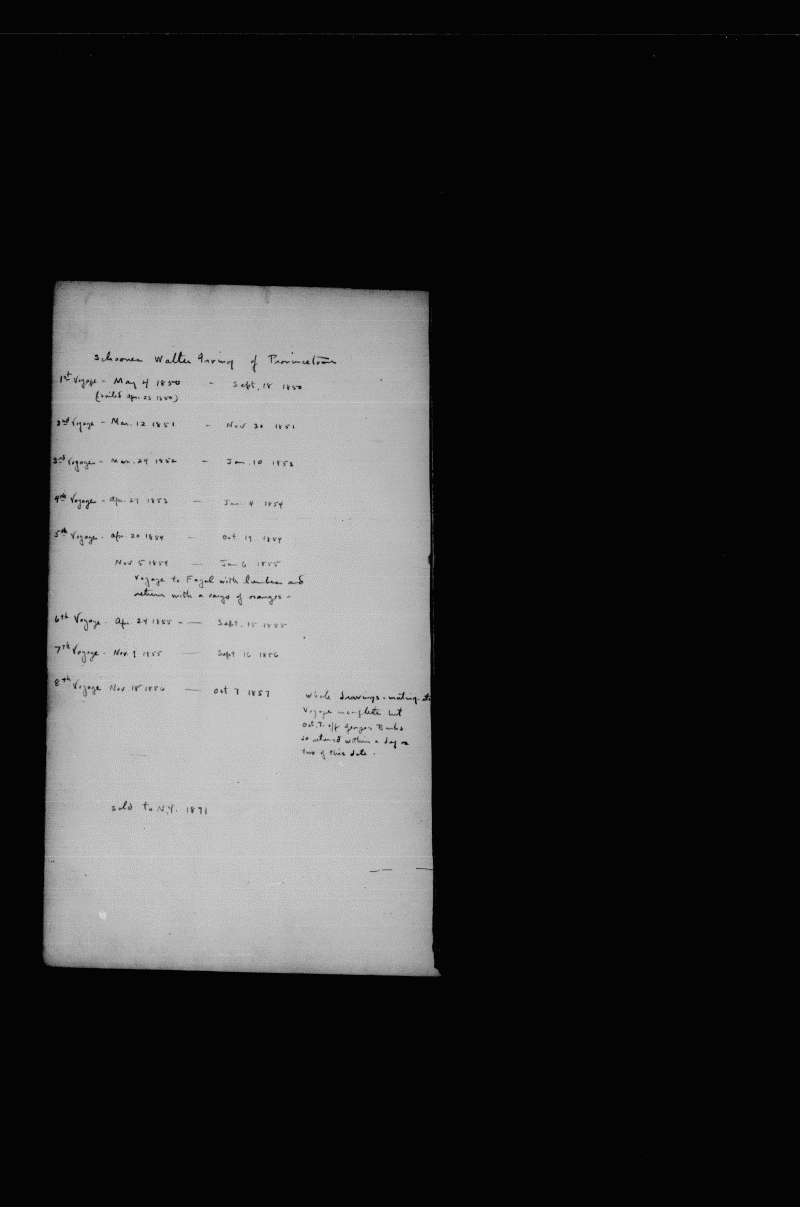 Schooner Walter Irving of Provincetown
1st Voyage - May 4 1850 - Sept. 18 1850
(sailed Apr. 23 1850)
2nd Voyage - Mar. 12 1851 - Nov 30 1851
3rd Voyage - Mar. 24 1852 - Jan. 10 1853
4th Voyage - Apr. 27 1853 — Jan. 4 1854
5th Voyage - Apr. 20 1854 — Oct 19 1854
Nov 5 1854 — Jan 6 1855
Voyage to Fayal with lumber and
return with a cargo of oranges -
6th Voyage - Apr. 24 1855 - — Sept. 15 1855
7th Voyage - Nov. 9 1855 — Sept 16 1856
8th Voyage Nov 18 1856 — Oct 7 1857
Whale drawings - mating - etc
Voyage incomplete but
Oct. 7. off Georges Banks
so returned within a day or
two of this date.
sold to N.Y. 1871